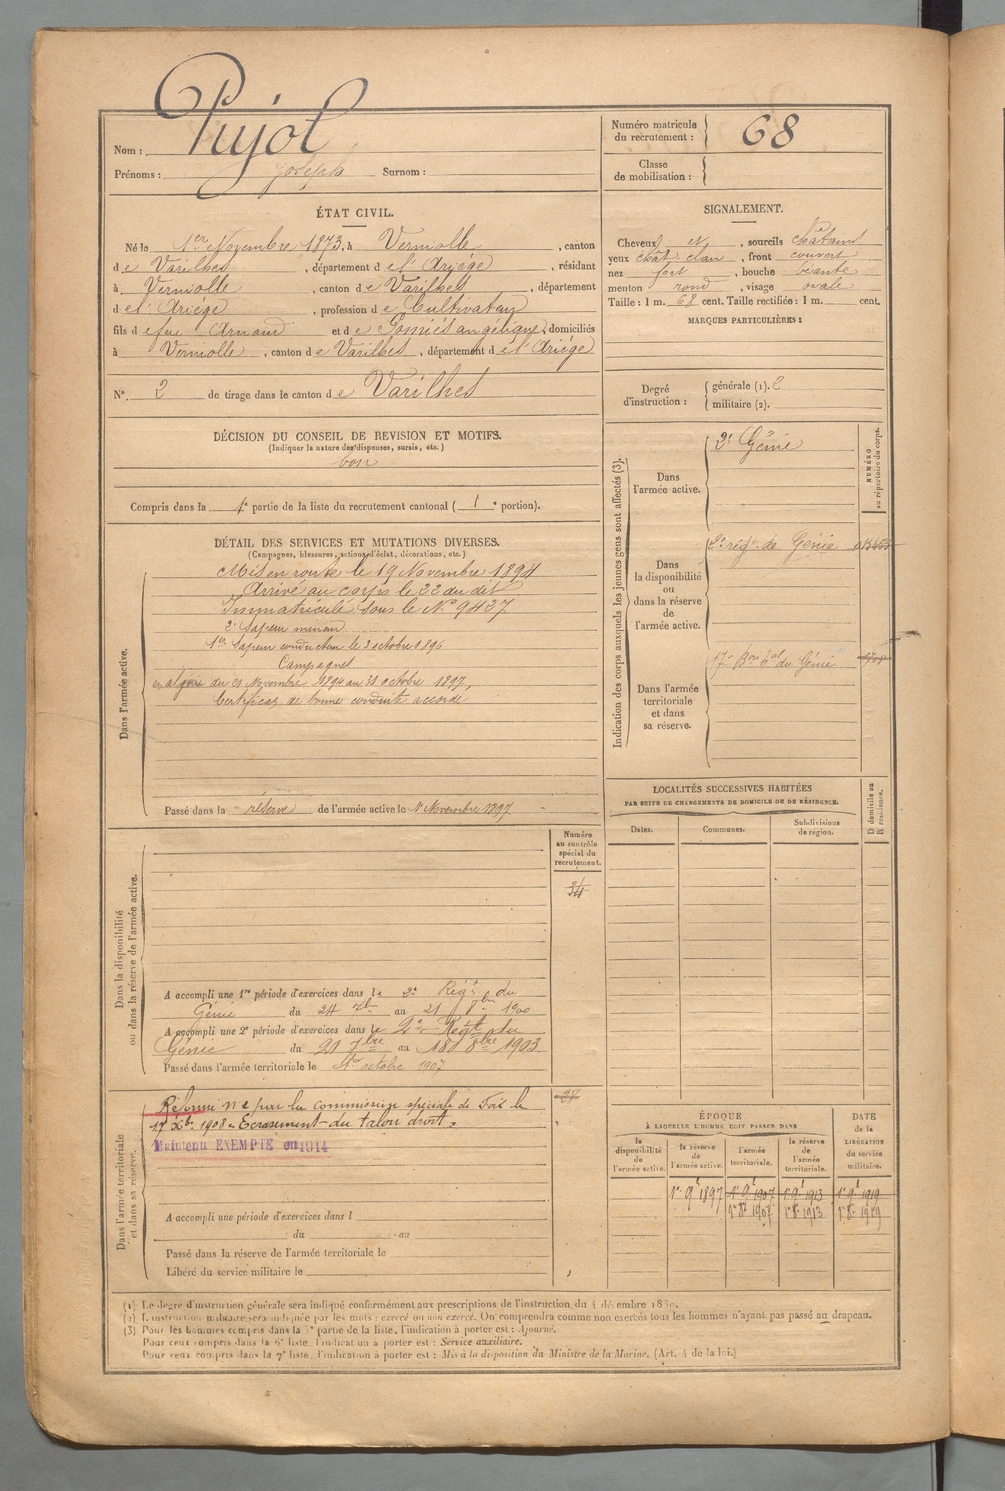 Nom : Pujol
Prénoms : Joseph Surnom :
Numéro matricule du recrutement : 68
Classe de mobilisation :
ÉTAT CIVIL.
Né le 1er Novembre 1873, à Verniolle, canton
de Varilhes, département de l'Ariége, résidant
à Verniolle, canton de Varilhes, département
de l'Ariége, profession de Cultivateur
fils de feu Arnaud et de Pomiès angélique, domiciliés
à Verniolle, canton de Varilhes, département de l'Ariége
N°. 2 de tirage dans le canton de Varilhes
SIGNALEMENT.
Cheveux et, sourcils châtains
yeux chât. clair, front couvert
nez fort, bouche béante
menton rond, visage ovale
Taille : 1 m. 68 cent. Taille rectifiée : 1 m. cent.
MARQUES PARTICULIÈRES :
Degré d'instruction : générale (1). 2
militaire (2).
DÉCISION DU CONSEIL DE REVISION ET MOTIFS.
(Indiquer la nature des dispenses, sursis, etc.)
bon
Compris dans la 1e partie de la liste du recrutement cantonal ( 1e portion).
DÉTAIL DES SERVICES ET MUTATIONS DIVERSES.
(Campagnes, blessures, actions d'éclat, décorations, etc.)
Dans l'armée active.
Mis en route le 19 Novembre 1894
Arrivé au corps le 22 au dit
Immatriculé sous le N° 9437
2e Sapeur mineur
1er Sapeur conducteur le 3 octobre 1896
Campagnes
en algérie du 21 Novembre 1894 au 31 octobre 1897
Certificat de bonne conduite accordé
Passé dans la réserve de l'armée active le 1er Novembre 1897
Indication des corps auxquels les jeunes gens sont affectés (3).
NUMÉRO au répertoire du corps.
Dans l'armée active.
2e Génie
Dans la disponibilité ou dans la réserve de l'armée active.
2e régt. de Génie
Dans l'armée territoriale et dans sa réserve.
17e Bon éal du Génie
LOCALITÉS SUCCESSIVES HABITÉES
PAR SUITE DE CHANGEMENTS DE DOMICILE OU DE RÉSIDENCE.
Dates. Communes. Subdivisions de région. D domicile ou R résidence.
Dans la disponibilité ou dans la réserve de l'armée active.
Numéro au contrôle spécial du recrutement.
34
A accompli une 1re période d'exercices dans le 2e Régt. du
Génie du 24 7bre au 21 8bre 1900
A accompli une 2e période d'exercices dans le 2e Régt. du
Génie du 21 7bre au 18 8bre 1903
Passé dans l'armée territoriale le 1er octobre 1907
Dans l'armée territoriale et dans sa réserve.
Réformé n° 2 par la commission spéciale de Foix le
17 Xbre 1908 « Ecrasement du talon droit »
Maintenu EXEMPTÉ en 1914
A accompli une période d'exercices dans l
du au
Passé dans la réserve de l'armée territoriale le
Libéré du service militaire le
ÉPOQUE
À LAQUELLE L'HOMME DOIT PASSER DANS
DATE de la LIBÉRATION du service militaire.
la disponibilité de l'armée active. la réserve de l'armée active. l'armée territoriale. la réserve de l'armée territoriale.
1er 9e 1897 1er 9e 1907 1er 9e 1913 1er 9e 1919
1er 8e 1907 1er 8e 1913 1er 8e 1919
(1) Le degré d'instruction générale sera indiqué conformément aux prescriptions de l'instruction du 4 décembre 1889.
(2) L'instruction militaire sera indiquée par les mots : exercé ou non exercé. On comprendra comme non exercés tous les hommes n'ayant pas passé au drapeau.
(3) Pour les hommes compris dans la 5e partie de la liste, l'indication à porter est : Ajourné.
Pour ceux compris dans la 6e liste, l'indication à porter est : Service auxiliaire.
Pour ceux compris dans la 7e liste, l'indication à porter est : Mis à la disposition du Ministre de la Marine. (Art. 4 de la loi.)